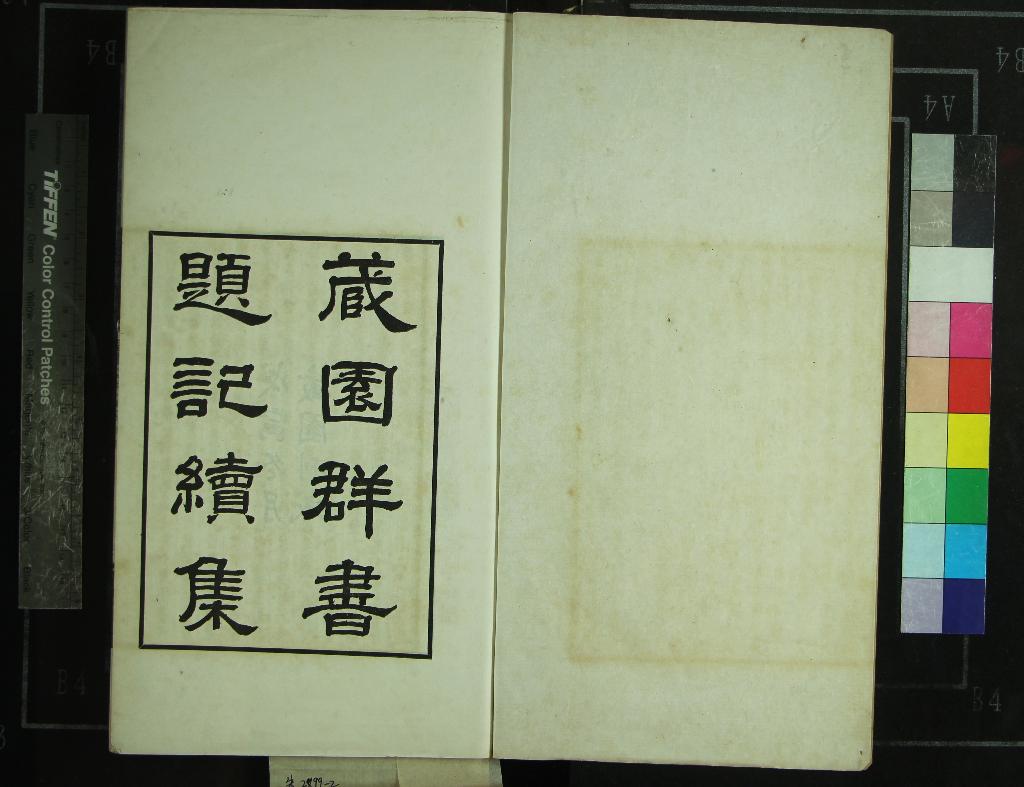 藏園群書
題記續集
TIFFEN Color Control Patches
B4
B4
A4
B4
B4